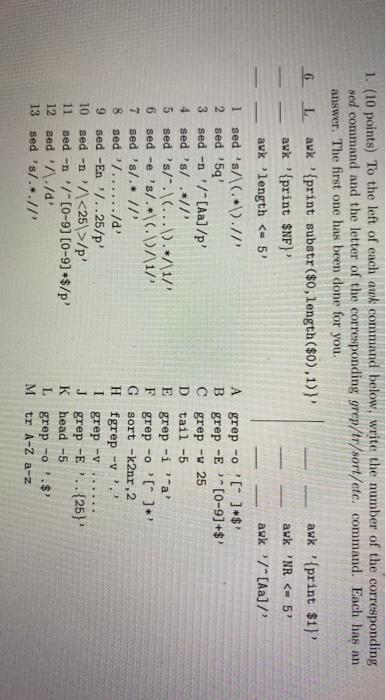 1. (10 points) To the left of each awk command below, write the number of the corresponding
sed command and the letter of the corresponding grep/tr/sort/etc. command. Each has an
answer. The first one has been done for you.
6 L awk '{print substr($0,length($0),1)}' awk '{print $1}'
awk '{print $NF}' awk 'NR <= 5'
awk 'length <= 5' awk '/^[Aa]/'
1 sed 's/\(.*\).//' A grep -o '[^ ]*$'
2 sed '5q' B grep -E '^[0-9]+$'
3 sed -n '/^[Aa]/p' C grep -w 25
4 sed 's/ .*//' D tail -5
5 sed 's/^.\(...\).*/\1/' E grep -i '^a'
6 sed -e 's/.*\(.\)/\1/' F grep -o '[^ ]*'
7 sed 's/.* //' G sort -k2nr,2
8 sed '/....../d' H fgrep -v '.'
9 sed -En '/..25/p' I grep -v ......
10 sed -n '/\<25\>/p' J grep -E '..{25}'
11 sed -n '/^[0-9][0-9]*$/p' K head -5
12 sed '/\./d' L grep -o '.$'
13 sed 's/.*.//' M tr A-Z a-z